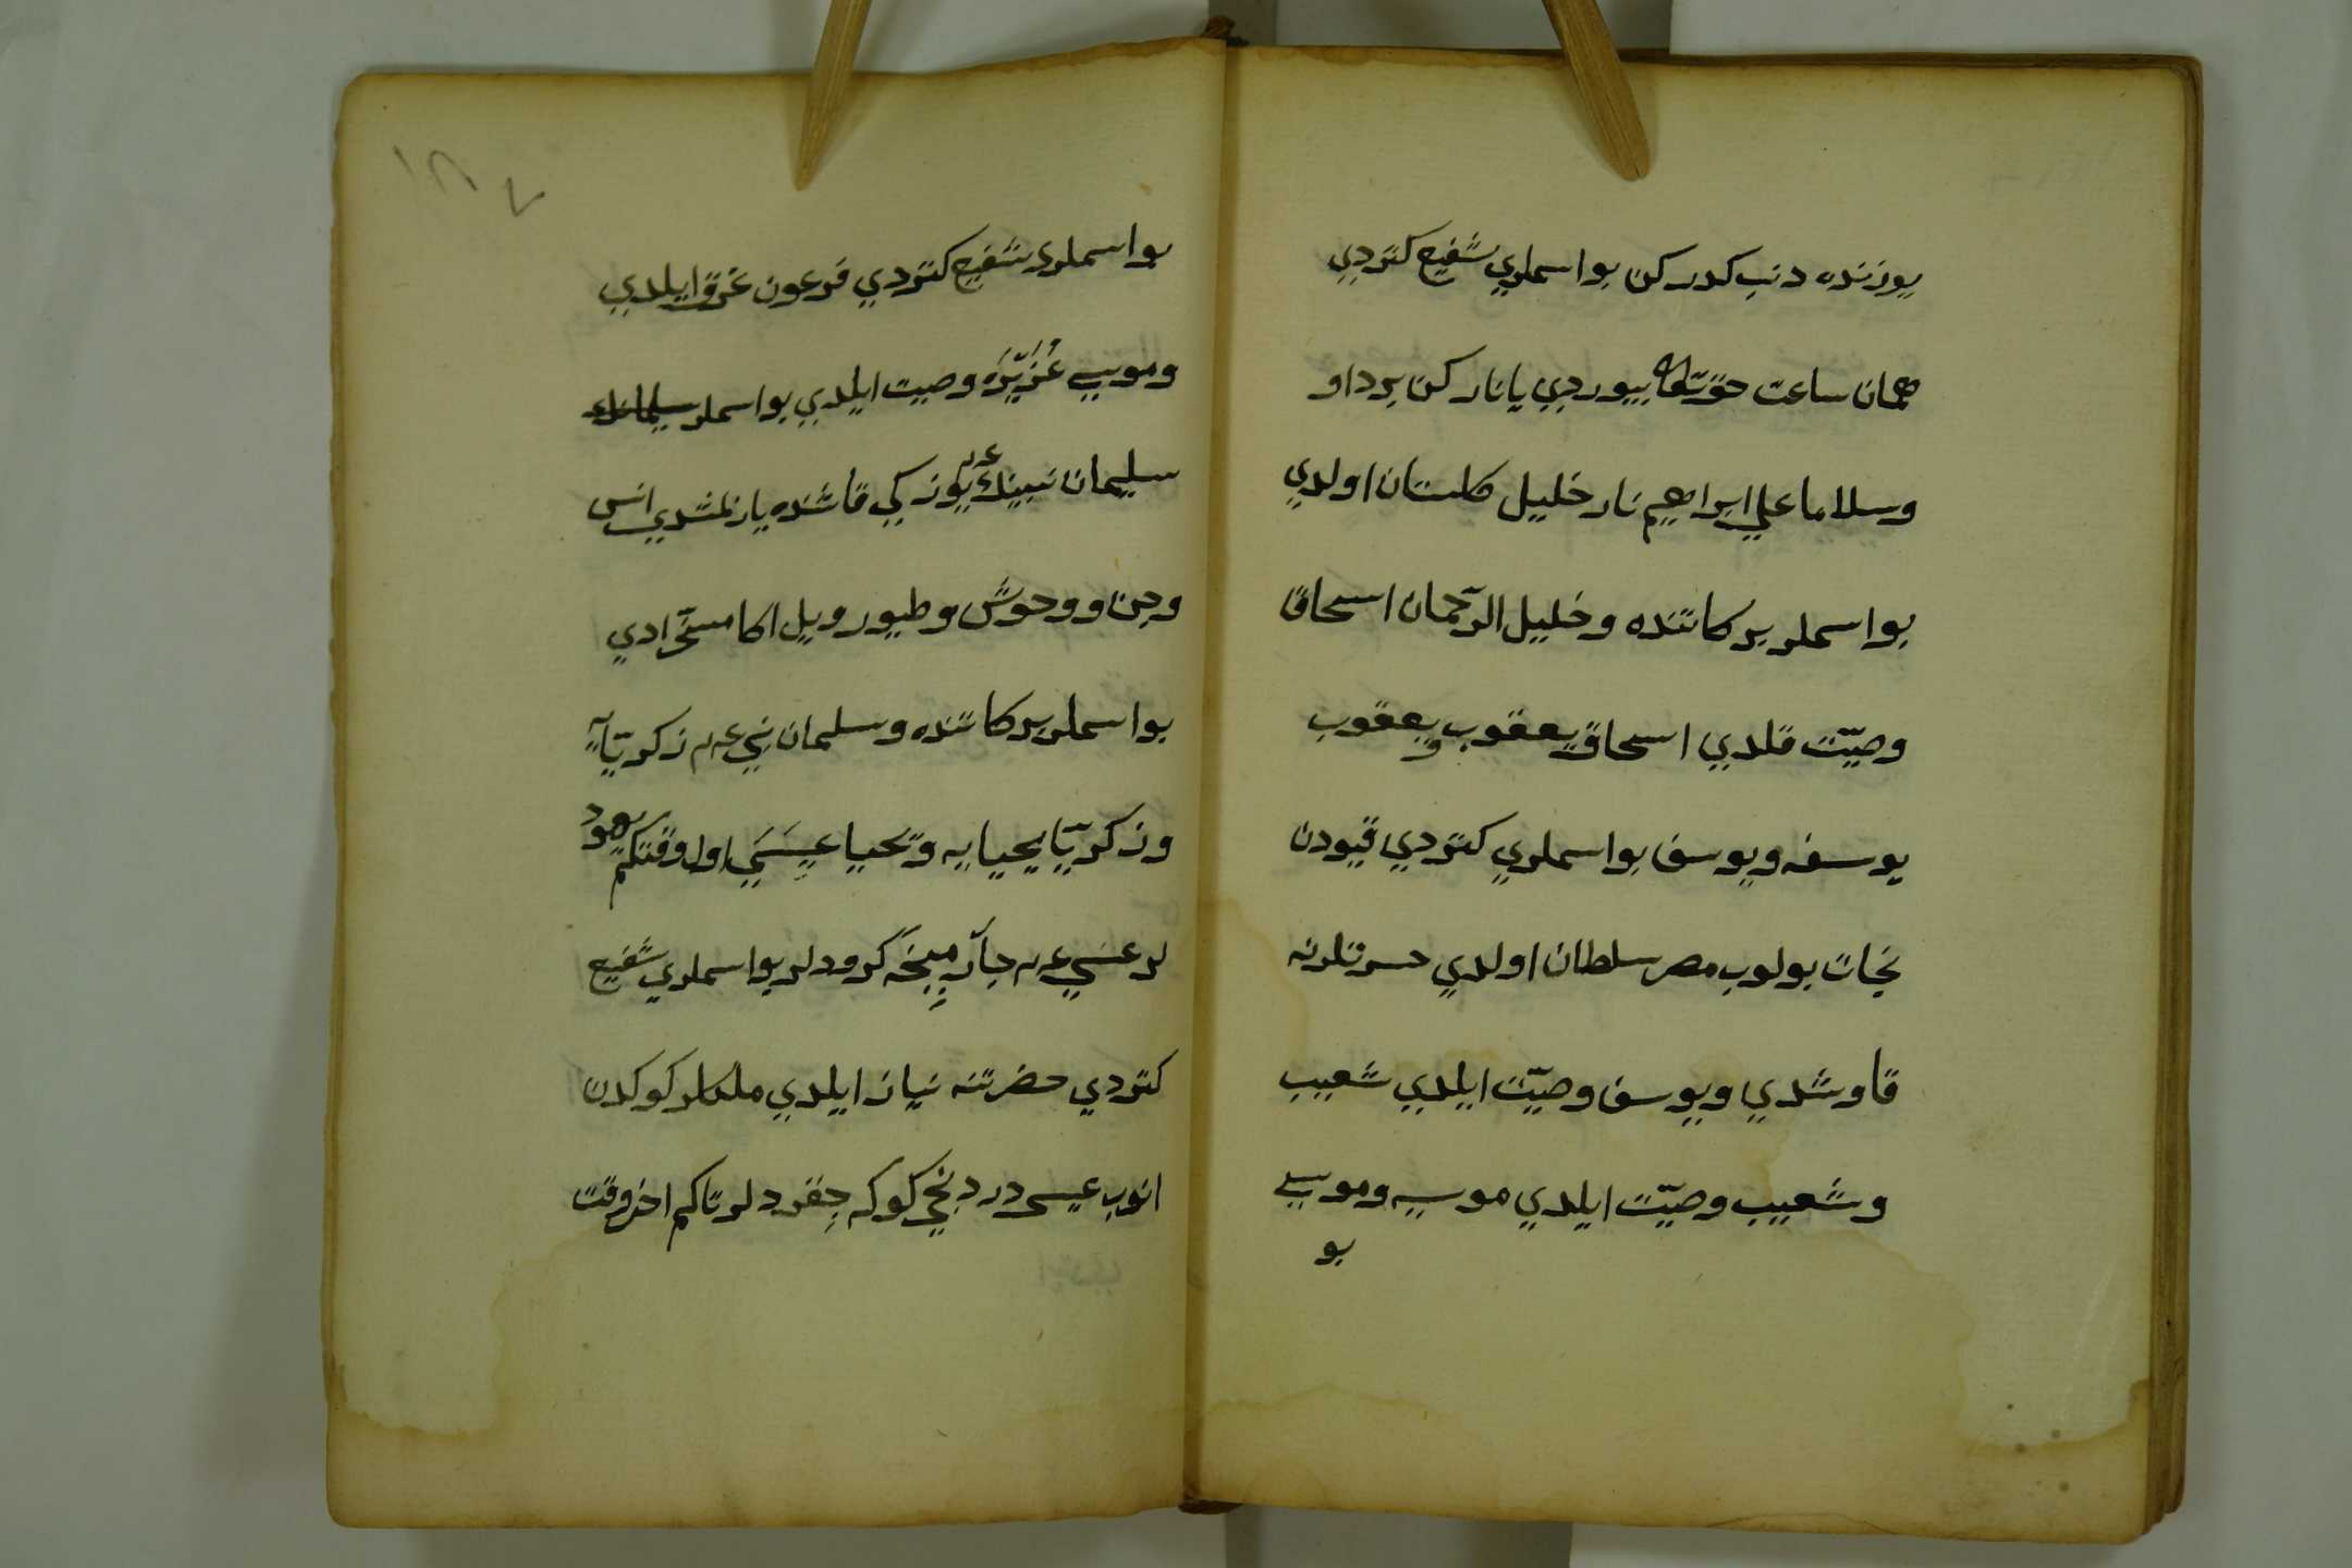 يوزنده دنب كدركن بو اسملري شفيع كتردي
همان ساعت حق تعالى بيوردي يا نار كن بردا و
وسلاما على ابراهيم نار خليل كلستان اولدي
بو اسملر بركاتنده و خليل الرحمان اسحاق
وصيّت قلدي اسحاق يعقوب و يعقوب
يوسفه و يوسف بو اسملري كتردي قيودن
نجات بولوب مصر سلطان اولدي حسرتلرنه
قاوشدي و يوسف وصيّت ايلدي شعيب
و شعيب وصيّت ايلدي موسيه و موسى
بو
١٨٧
بو اسملري شفيع كتردي فرعون غرق ايلدي
و موسى عُزَيْره وصيت ايلدي بو اسملر سليمانك
سليمان نبينك عم يوزكي قاشنده يازلمشدي انس
و جن و وحوش و طيور و يل اكا مسخّر ادي
بو اسملر بركاتنده و سلمان نبي عم زكريّآ
و زكريّا يحيايه و يحيا عيسَى اول وقتكم يهود
لر عسي عم جآر ميخه كرودلر بو اسملري شفيع
كتردي حضرتنه نياز ايلدي ملكلر كوكدن
انوب عيسى دردنجي كوكه جقردلر تاكم اخر وقت